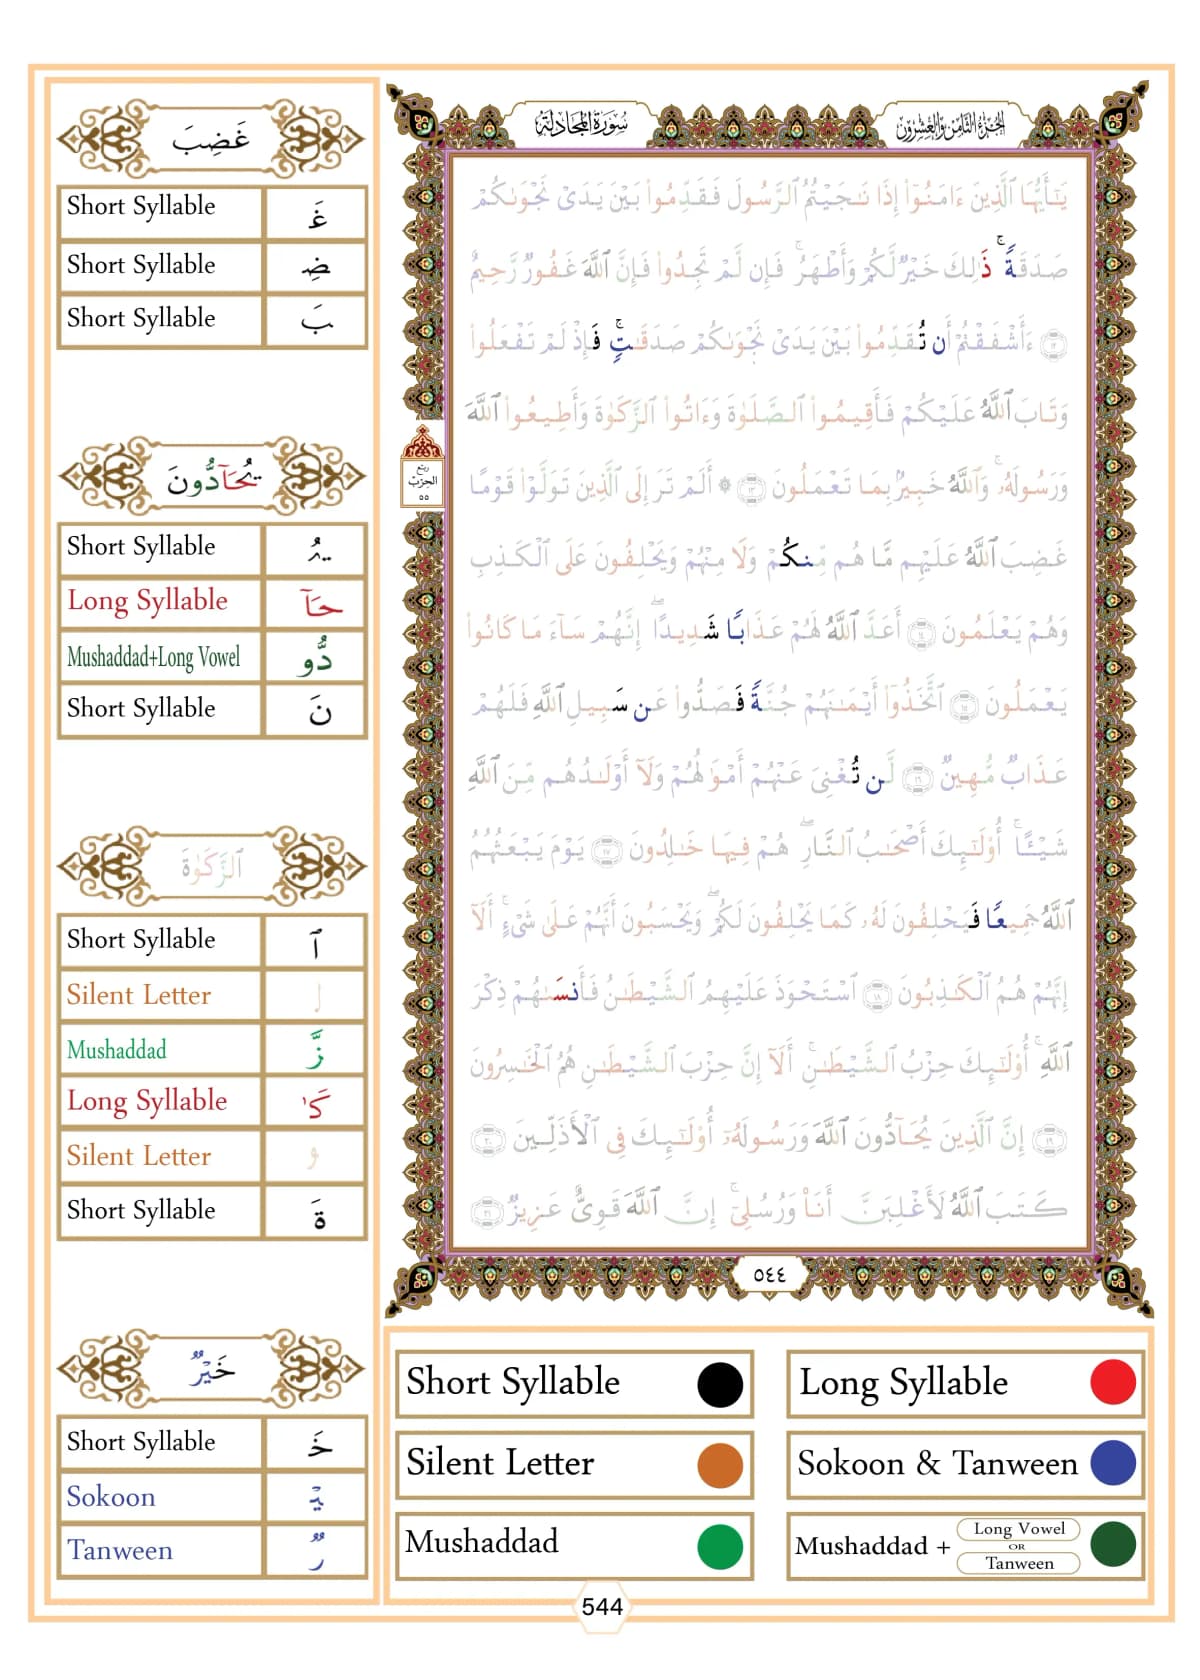 سُورَةُ المُجَادلَة
الجُزءُ الثَّامِنُ وَالعِشرُونَ
غَضِبَ
Short Syllable غَ
Short Syllable ضِ
Short Syllable بَ
يُحَآدُّونَ
Short Syllable يُ
Long Syllable حَآ
Mushaddad+Long Vowel دُّو
Short Syllable نَ
ٱلزَّكَوٰةَ
Short Syllable ٱ
Silent Letter ل
Mushaddad زَّ
Long Syllable كَٰ
Silent Letter و
Short Syllable ةَ
خَيْرٌ
Short Syllable خَ
Sokoon يْ
Tanween رٌ
يَٰٓأَيُّهَا ٱلَّذِينَ ءَامَنُوٓا۟ إِذَا نَٰجَيْتُمُ ٱلرَّسُولَ فَقَدِّمُوا۟ بَيْنَ يَدَىْ نَجْوَىٰكُمْ
صَدَقَةً ۚ ذَٰلِكَ خَيْرٌ لَّكُمْ وَأَطْهَرُ ۚ فَإِن لَّمْ تَجِدُوا۟ فَإِنَّ ٱللَّهَ غَفُورٌ رَّحِيمٌ
١٢ ءَأَشْفَقْتُمْ أَن تُقَدِّمُوا۟ بَيْنَ يَدَىْ نَجْوَىٰكُمْ صَدَقَٰتٍ ۚ فَإِذْ لَمْ تَفْعَلُوا۟
وَتَابَ ٱللَّهُ عَلَيْكُمْ فَأَقِيمُوا۟ ٱلصَّلَوٰةَ وَءَاتُوا۟ ٱلزَّكَوٰةَ وَأَطِيعُوا۟ ٱللَّهَ
وَرَسُولَهُۥ ۚ وَٱللَّهُ خَبِيرٌۢ بِمَا تَعْمَلُونَ ١٣ ۞ أَلَمْ تَرَ إِلَى ٱلَّذِينَ تَوَلَّوْا۟ قَوْمًا
غَضِبَ ٱللَّهُ عَلَيْهِم مَّا هُم مِّنكُمْ وَلَا مِنْهُمْ وَيَحْلِفُونَ عَلَى ٱلْكَذِبِ
وَهُمْ يَعْلَمُونَ ١٤ أَعَدَّ ٱللَّهُ لَهُمْ عَذَابًا شَدِيدًا ۖ إِنَّهُمْ سَآءَ مَا كَانُوا۟
يَعْمَلُونَ ١٥ ٱتَّخَذُوٓا۟ أَيْمَٰنَهُمْ جُنَّةً فَصَدُّوا۟ عَن سَبِيلِ ٱللَّهِ فَلَهُمْ
عَذَابٌ مُّهِينٌ ١٦ لَّن تُغْنِىَ عَنْهُمْ أَمْوَٰلُهُمْ وَلَآ أَوْلَٰدُهُم مِّنَ ٱللَّهِ
شَيْـًٔا ۚ أُو۟لَٰٓئِكَ أَصْحَٰبُ ٱلنَّارِ ۖ هُمْ فِيهَا خَٰلِدُونَ ١٧ يَوْمَ يَبْعَثُهُمُ
ٱللَّهُ جَمِيعًا فَيَحْلِفُونَ لَهُۥ كَمَا يَحْلِفُونَ لَكُمْ ۖ وَيَحْسَبُونَ أَنَّهُمْ عَلَىٰ شَىْءٍ ۚ أَلَآ
إِنَّهُمْ هُمُ ٱلْكَٰذِبُونَ ١٨ ٱسْتَحْوَذَ عَلَيْهِمُ ٱلشَّيْطَٰنُ فَأَنسَىٰهُمْ ذِكْرَ
ٱللَّهِ ۚ أُو۟لَٰٓئِكَ حِزْبُ ٱلشَّيْطَٰنِ ۚ أَلَآ إِنَّ حِزْبَ ٱلشَّيْطَٰنِ هُمُ ٱلْخَٰسِرُونَ
١٩ إِنَّ ٱلَّذِينَ يُحَآدُّونَ ٱللَّهَ وَرَسُولَهُۥٓ أُو۟لَٰٓئِكَ فِى ٱلْأَذَلِّينَ ٢٠
كَتَبَ ٱللَّهُ لَأَغْلِبَنَّ أَنَا۠ وَرُسُلِىٓ ۚ إِنَّ ٱللَّهَ قَوِىٌّ عَزِيزٌ ٢١
ربع
الحزب
٥٥
٥٤٤
Short Syllable
Long Syllable
Silent Letter
Sokoon & Tanween
Mushaddad
Mushaddad + Long Vowel OR Tanween
544